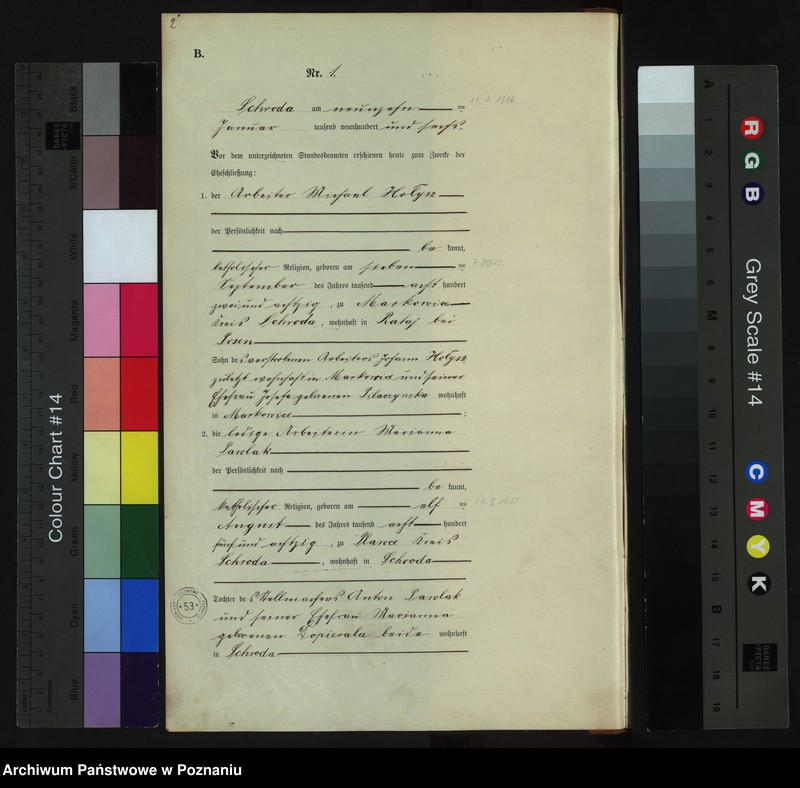 2
B.
Nr. 1.
Schroda am neunzehn ten
Januar tausend neunhundert und sechs.
Vor dem unterzeichneten Standesbeamten erschienen heute zum Zwecke der
Eheschließung:
1. der Arbeiter Michael Hołysz
der Persönlichkeit nach
be kannt,
katholischer Religion, geboren am sieben ten
September des Jahres tausend acht hundert
zwei und achtzig, zu Markowice
Kreis Schroda, wohnhaft in Rataj bei
Posen
Sohn des verstorbenen Arbeiters Johann Hołysz,
zuletzt wohnhaft in Markowice und seiner
Ehefrau Josefa geborenen wohnhaft
in Markowice ;
2. die ledige Arbeiterin Marianna
Pawlak
der Persönlichkeit nach
be kannt,
katholischer Religion, geboren am elf ten
August des Jahres tausend acht hundert
fünf und achtzig, zu Kreis
Schroda, wohnhaft in Schroda
Tochter des Stellmachers Anton Pawlak
und seiner Ehefrau Marianna
geborenen Dopierala beide wohnhaft
in Schroda
53
Colour Chart #14
Black
3/Color
White
Magenta
Red
Yellow
Green
Cyan
Blue
DANES
PICTA
Grey Scale #14
R
G
B
C
M
Y
K
A
1
2
3
4
5
6
M
8
9
10
11
12
13
14
15
B
17
18
19
DANES
PICTA
.COM
Archiwum Państwowe w Poznaniu